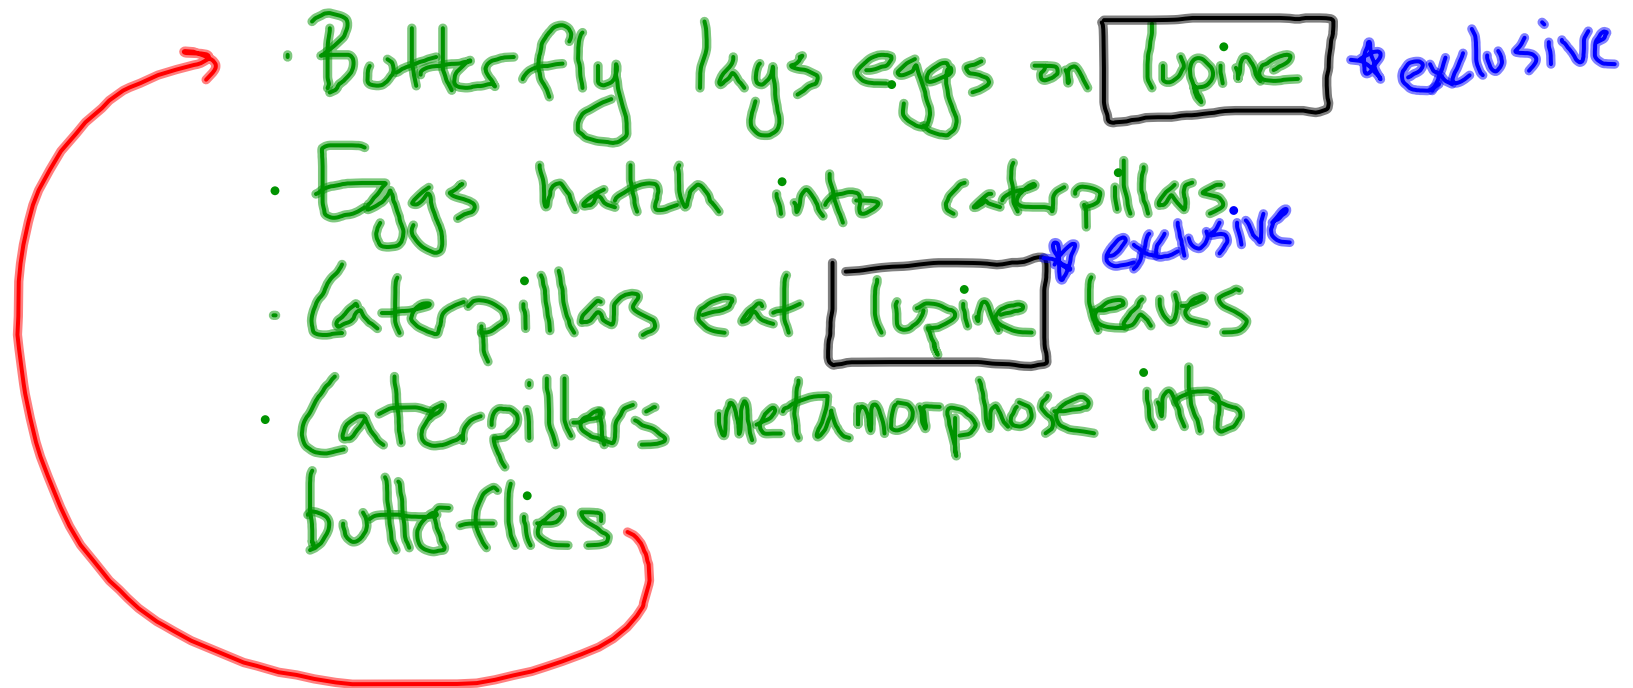 · Butterfly lays eggs on lupine * exclusive
· Eggs hatch into caterpillars.
* exclusive
· Caterpillars eat lupine leaves
· Caterpillers metamorphose into
butterflies